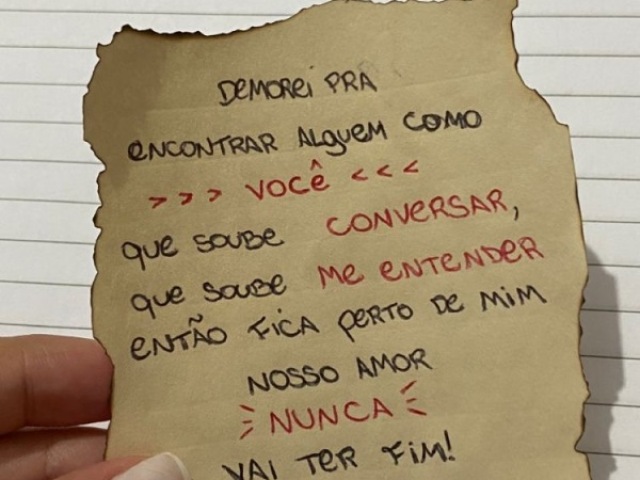 DEMOREI PRA
ENCONTRAR ALGUEM COMO
> > > VOCÊ < < <
QUE SOUBE CONVERSAR,
QUE SOUBE ME ENTENDER
ENTÃO FICA PERTO DE MIM
NOSSO AMOR
NUNCA
VAI TER FIM!